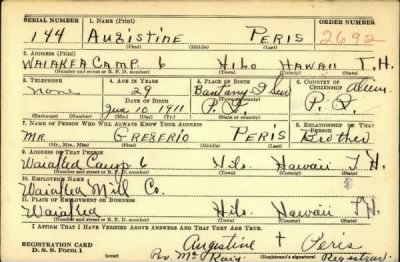 SERIAL NUMBER 1. NAME (Print) ORDER NUMBER
144 AUGISTINE PERIS 2692
(First) (Middle) (Last)
2. ADDRESS (Print)
WAIAKEA CAMP 6 HILO HAWAII T.H.
(Number and street or R. F. D. number) (Town) (County) (State)
3. TELEPHONE 4. AGE IN YEARS 5. PLACE OF BIRTH 6. COUNTRY OF CITIZENSHIP
none 29
DATE OF BIRTH P. I. P. I.
10 1911
(Exchange) (No.) (Mo.) (Day) (Yr.) (State or country)
7. NAME OF PERSON WHO WILL ALWAYS KNOW YOUR ADDRESS 8. RELATIONSHIP OF THAT PERSON
MR GREGERIO PERIS Brother
(Mr., Mrs., Miss) (First) (Middle) (Last)
9. ADDRESS OF THAT PERSON
Waiakea Camp 6 Hilo Hawaii T H.
(Number and street or R. F. D. number) (Town) (County) (State)
10. EMPLOYER'S NAME
Waiakea Mill Co.
11. PLACE OF EMPLOYMENT OR BUSINESS
Waiakea Hilo Hawaii T.H.
(Number and street or R. F. D. number) (Town) (County) (State)
I AFFIRM THAT I HAVE VERIFIED ABOVE ANSWERS AND THAT THEY ARE TRUE.
Augustine + Peris
REGISTRATION CARD
D. S. S. Form 1 (Registrant's signature) Registrar